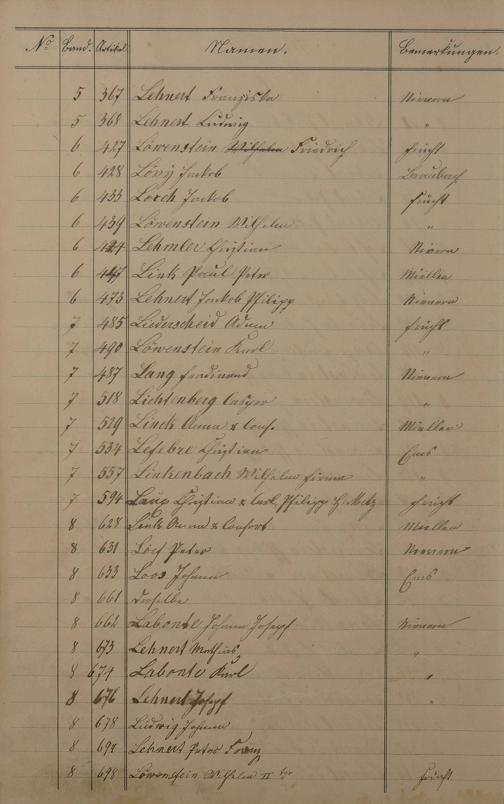 No Band. Artikel Namen. Bemerkungen.
5 367 Lehnert Franziska Nievern
5 368 Lehnert Ludwig "
6 427 Löwenstein Wilhelm Friedrich Frücht
6 428 Lövy Jakob Braubach
6 433 Lorch Jakob Frücht
6 439 Löwenstein Wilhelm "
6 Lehmler Christian Nievern
6 Link Paul Peter Miellen
6 473 Lehnert Jakob Philipp Nievern
7 485 Liederscheid Adam Frücht
7 490 Löwenstein Karl "
7 487 Lang Ferdinand Nievern
7 518 Lichtenberg Casper "
7 529 Linck Anna & Cons. Miellen
7 534 Lefebre Christian Ems
7 557 Linkenbach Wilhelm Firma "
7 594 Christian & Carl Philipp Frücht
8 628 Link Anna & Consort Miellen
8 631 Peter Nievern
8 633 Loos Johann Ems
8 661 Derselbe
8 662 Labonte Johann Josepf Nievern
8 673 Lehnert Mathias "
8 674 Labonte Karl "
8 676 Lehnert Josepf "
8 678 Ludwig Johann
8 Lehnert Peter Franz
8 698 Löwenstein Wilhelm II ter Frücht